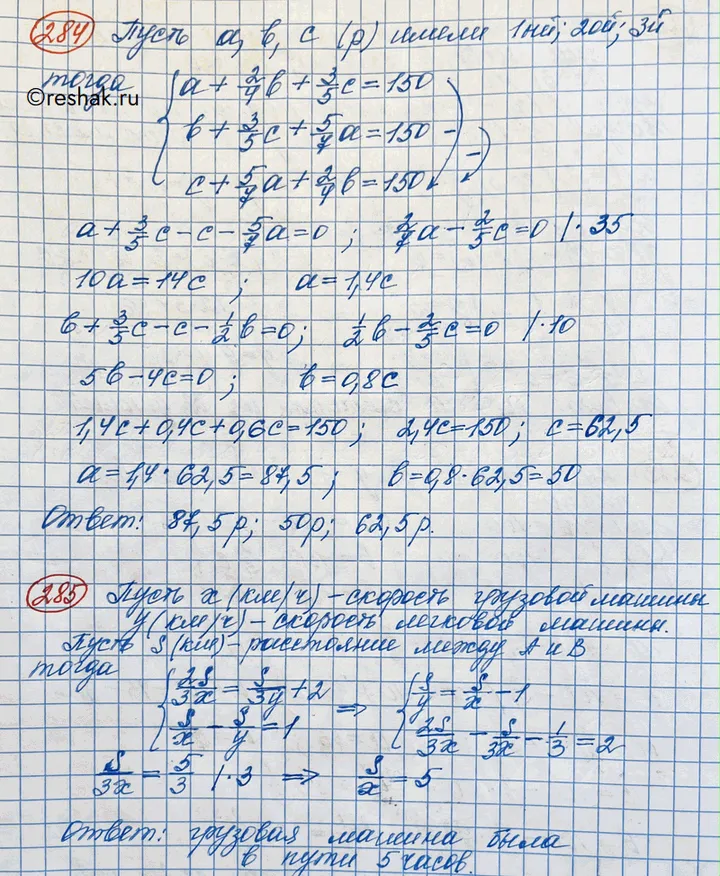 284 Пусть a, b, c (р) имели 1ый; 2ой; 3й
тогда
©reshak.ru
a + 2/4 b + 3/5 c = 150
b + 3/5 c + 5/7 a = 150 -
c + 5/7 a + 2/4 b = 150 -
a + 3/5 c - c - 5/7 a = 0 ; 2/7 a - 2/5 c = 0 | · 35
10a = 14c ; a = 1,4c
b + 3/5 c - c - 1/2 b = 0 ; 1/2 b - 2/5 c = 0 | · 10
5b - 4c = 0 ; b = 0,8c
1,4c + 0,4c + 0,6c = 150 ; 2,4c = 150 ; c = 62,5
a = 1,4 · 62,5 = 87,5 ; b = 0,8 · 62,5 = 50
Ответ: 87,5р; 50р; 62,5р.
285 Пусть x (км/ч) - скорость грузовой машины
y (км/ч) - скорость легковой машины.
Пусть S (км) - расстояние между A и B
тогда
2S/3x = S/3y + 2 => S/y = S/x - 1
S/x - S/y = 1 2S/3x - S/3x - 1/3 = 2
S/3x = 5/3 | · 3 => S/x = 5
Ответ: грузовая машина была
в пути 5 часов.